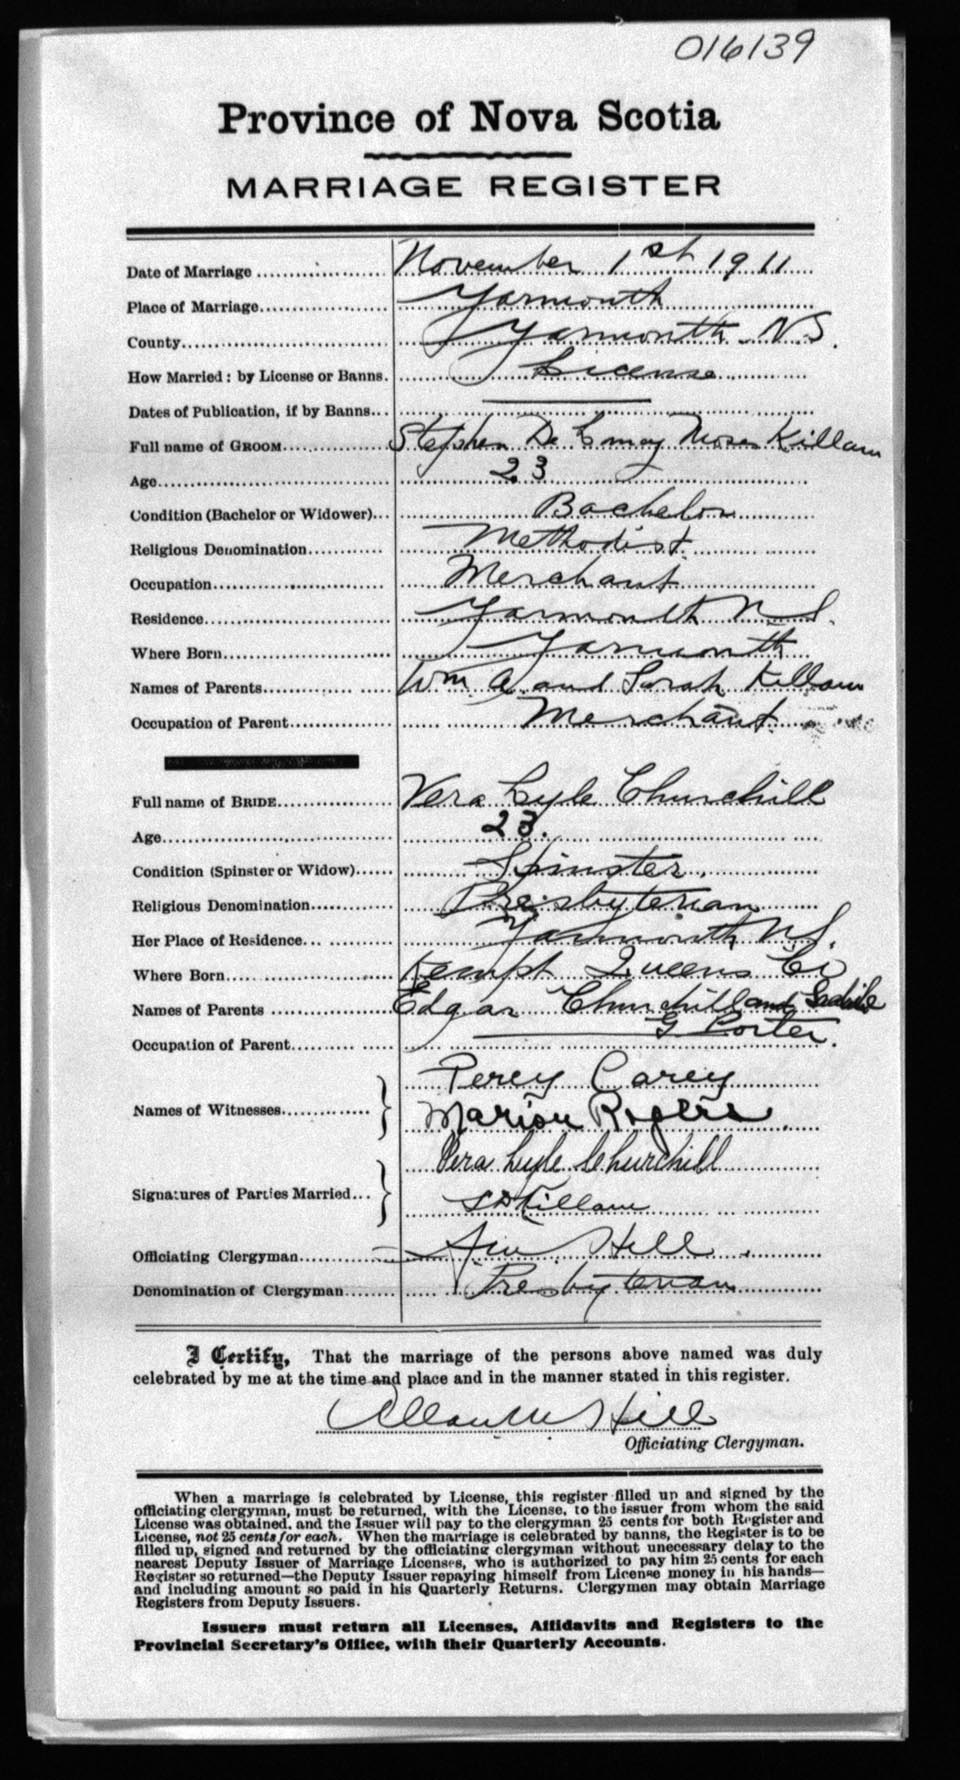 016139
Province of Nova Scotia
MARRIAGE REGISTER
Date of Marriage November 1st 1911
Place of Marriage Yarmouth
County Yarmouth N.S.
How Married: by License or Banns. License
Dates of Publication, if by Banns
Full name of GROOM Stephen De Moses Killam
Age 23
Condition (Bachelor or Widower) Bachelor
Religious Denomination Methodist
Occupation Merchant
Residence Yarmouth N S.
Where Born Yarmouth
Names of Parents Wm A. and Sarah Killam
Occupation of Parent Merchant
Full name of BRIDE Vera Lyle Churchill
Age 23.
Condition (Spinster or Widow) Spinster.
Religious Denomination Presbyterian
Her Place of Residence Yarmouth N S.
Where Born Kempt Queens Co
Names of Parents Edgar Churchill and
G Porter.
Occupation of Parent
Percy Carey
Names of Witnesses
Marion Rogers.
Vera Lyle Churchill
Signatures of Parties Married
S D Killam
Officiating Clergyman Hill.
Denomination of Clergyman Presbyterian
I Certify, That the marriage of the persons above named was duly
celebrated by me at the time and place and in the manner stated in this register.
Hill
Officiating Clergyman.
When a marriage is celebrated by License, this register filled up and signed by the
officiating clergyman, must be returned, with the License, to the issuer from whom the said
License was obtained, and the Issuer will pay to the clergyman 25 cents for both Register and
License, not 25 cents for each. When the marriage is celebrated by banns, the Register is to be
filled up, signed and returned by the officiating clergyman without unnecessary delay to the
nearest Deputy Issuer of Marriage Licenses, who is authorized to pay him 25 cents for each
Register so returned—the Deputy Issuer repaying himself from License money in his hands—
and including amount so paid in his Quarterly Returns. Clergymen may obtain Marriage
Registers from Deputy Issuers.
Issuers must return all Licenses, Affidavits and Registers to the
Provincial Secretary's Office, with their Quarterly Accounts.